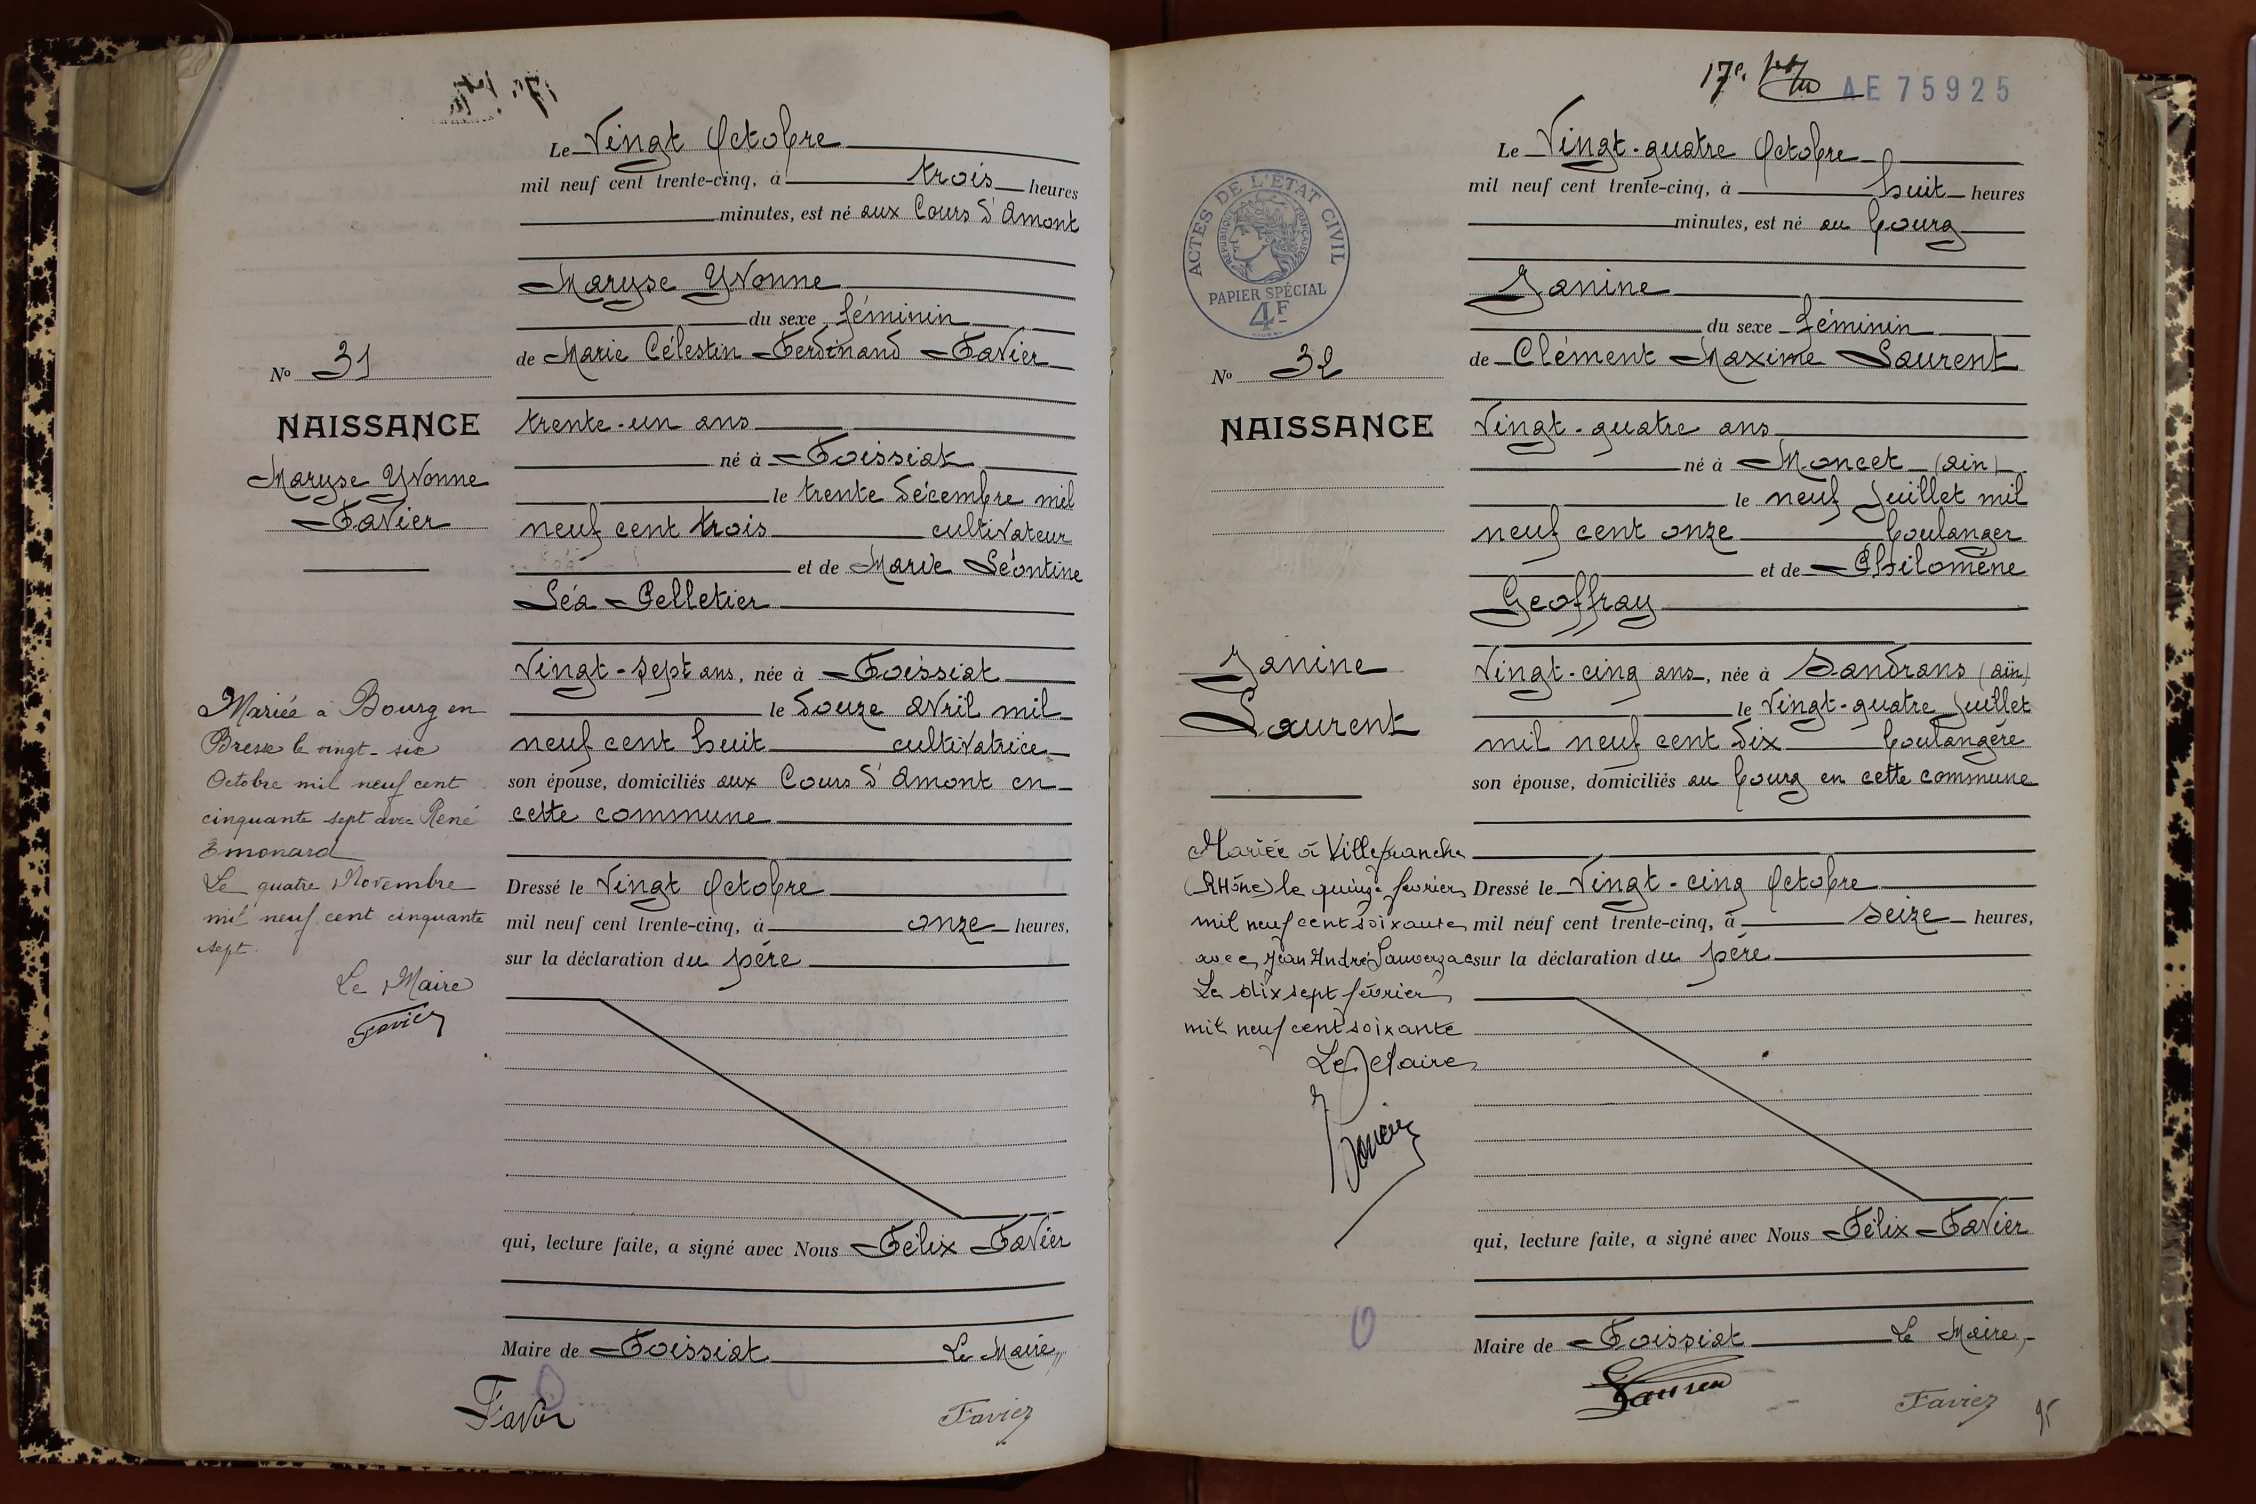 Le Vingt Octobre
mil neuf cent trente-cinq, à trois heures
minutes, est né aux Cours d'Amont
Maryse Yvonne
du sexe féminin
de Marie Célestin Ferdinand Favier
No 31
NAISSANCE
Maryse Yvonne
Favier
trente-un ans
né à Foissiat
le trente décembre mil
neuf cent trois cultivateur
et de Marie Léontine
Léa Pelletier
Vingt-sept ans, née à Foissiat
le douze avril mil
neuf cent huit cultivatrice
son épouse, domiciliés aux Cours d'Amont en
cette commune
Dressé le Vingt Octobre
mil neuf cent trente-cinq, à onze heures,
sur la déclaration du père
qui, lecture faite, a signé avec Nous Félix Favier
Maire de Foissiat Le Maire,,
Mariée à Bourg en
Bresse le vingt-six
Octobre mil neuf cent
cinquante sept avec René
Emonard
Le quatre Novembre
mil neuf cent cinquante
sept.
Le Maire
Favier
Favier
Favier
17e
AE 75925
Le Vingt-quatre Octobre
mil neuf cent trente-cinq, à huit heures
minutes, est né au bourg
Janine
du sexe féminin
de Clément Maxime Laurent
ACTES DE L'ETAT CIVIL
REPUBLIQUE FRANÇAISE
PAPIER SPÉCIAL
4F
No 32
NAISSANCE
Janine
Laurent
Vingt-quatre ans
né à Moncet (Ain)
le neuf Juillet mil
neuf cent onze boulanger
et de Philomène
Geoffray
Vingt-cinq ans, née à Sandrans (Ain)
le Vingt-quatre Juillet
mil neuf cent dix boulangère
son épouse, domiciliés au bourg en cette commune
Dressé le Vingt-cinq Octobre
mil neuf cent trente-cinq, à seize heures,
sur la déclaration du père
qui, lecture faite, a signé avec Nous Félix Favier
Maire de Foissiat Le Maire,
Mariée à Villefranche
(Rhône) le quinze février
mil neuf cent soixante
avec Jean André
Le dix sept février
mil neuf cent soixante
Le Maire
Laurent
Favier